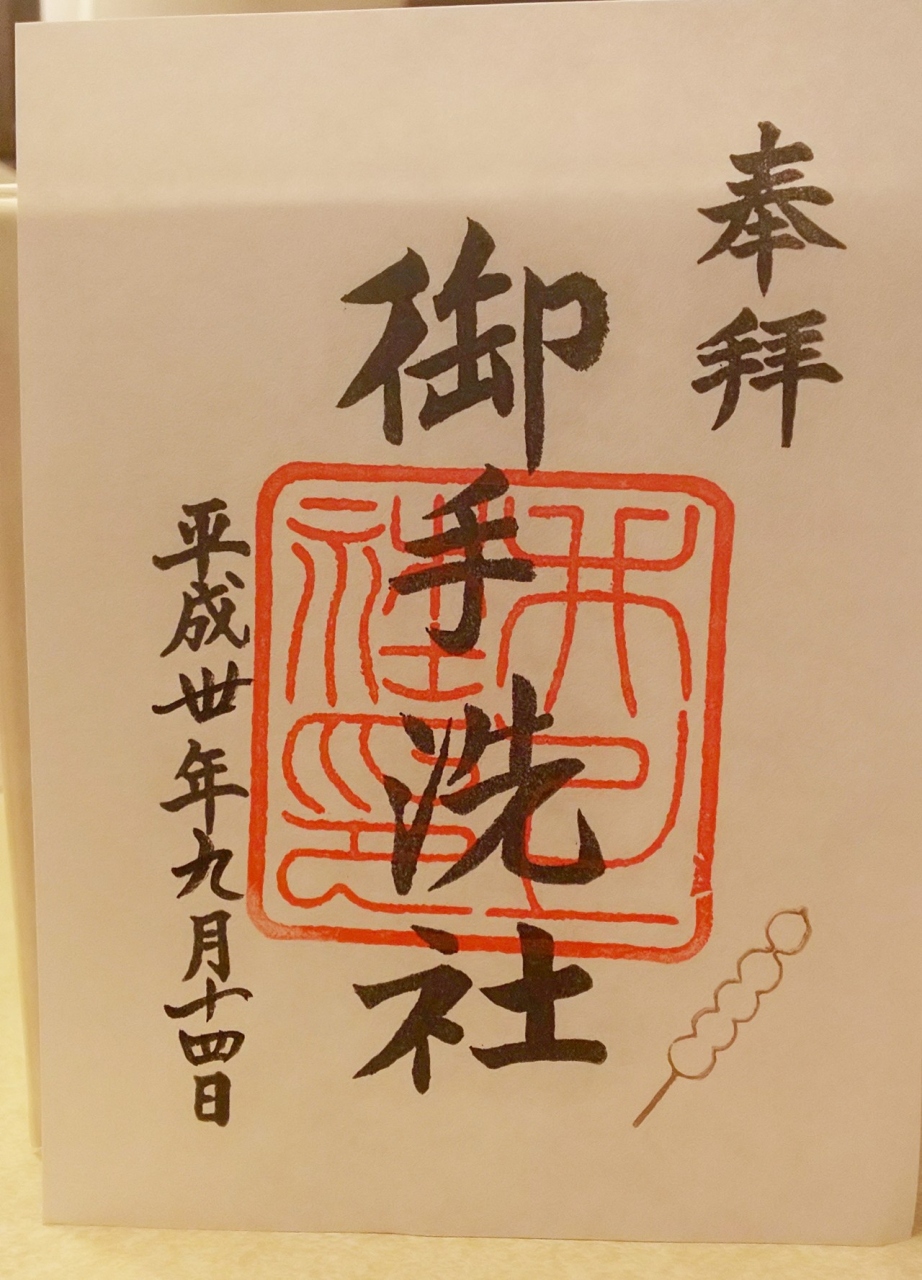 奉拝
御手洗社
平成丗年九月十四日